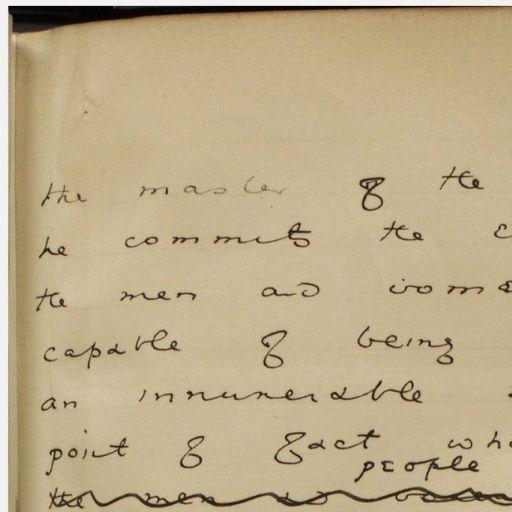 the master of the
he commits the
the men and
capable of being
an innumerable
point of fact
people
the men